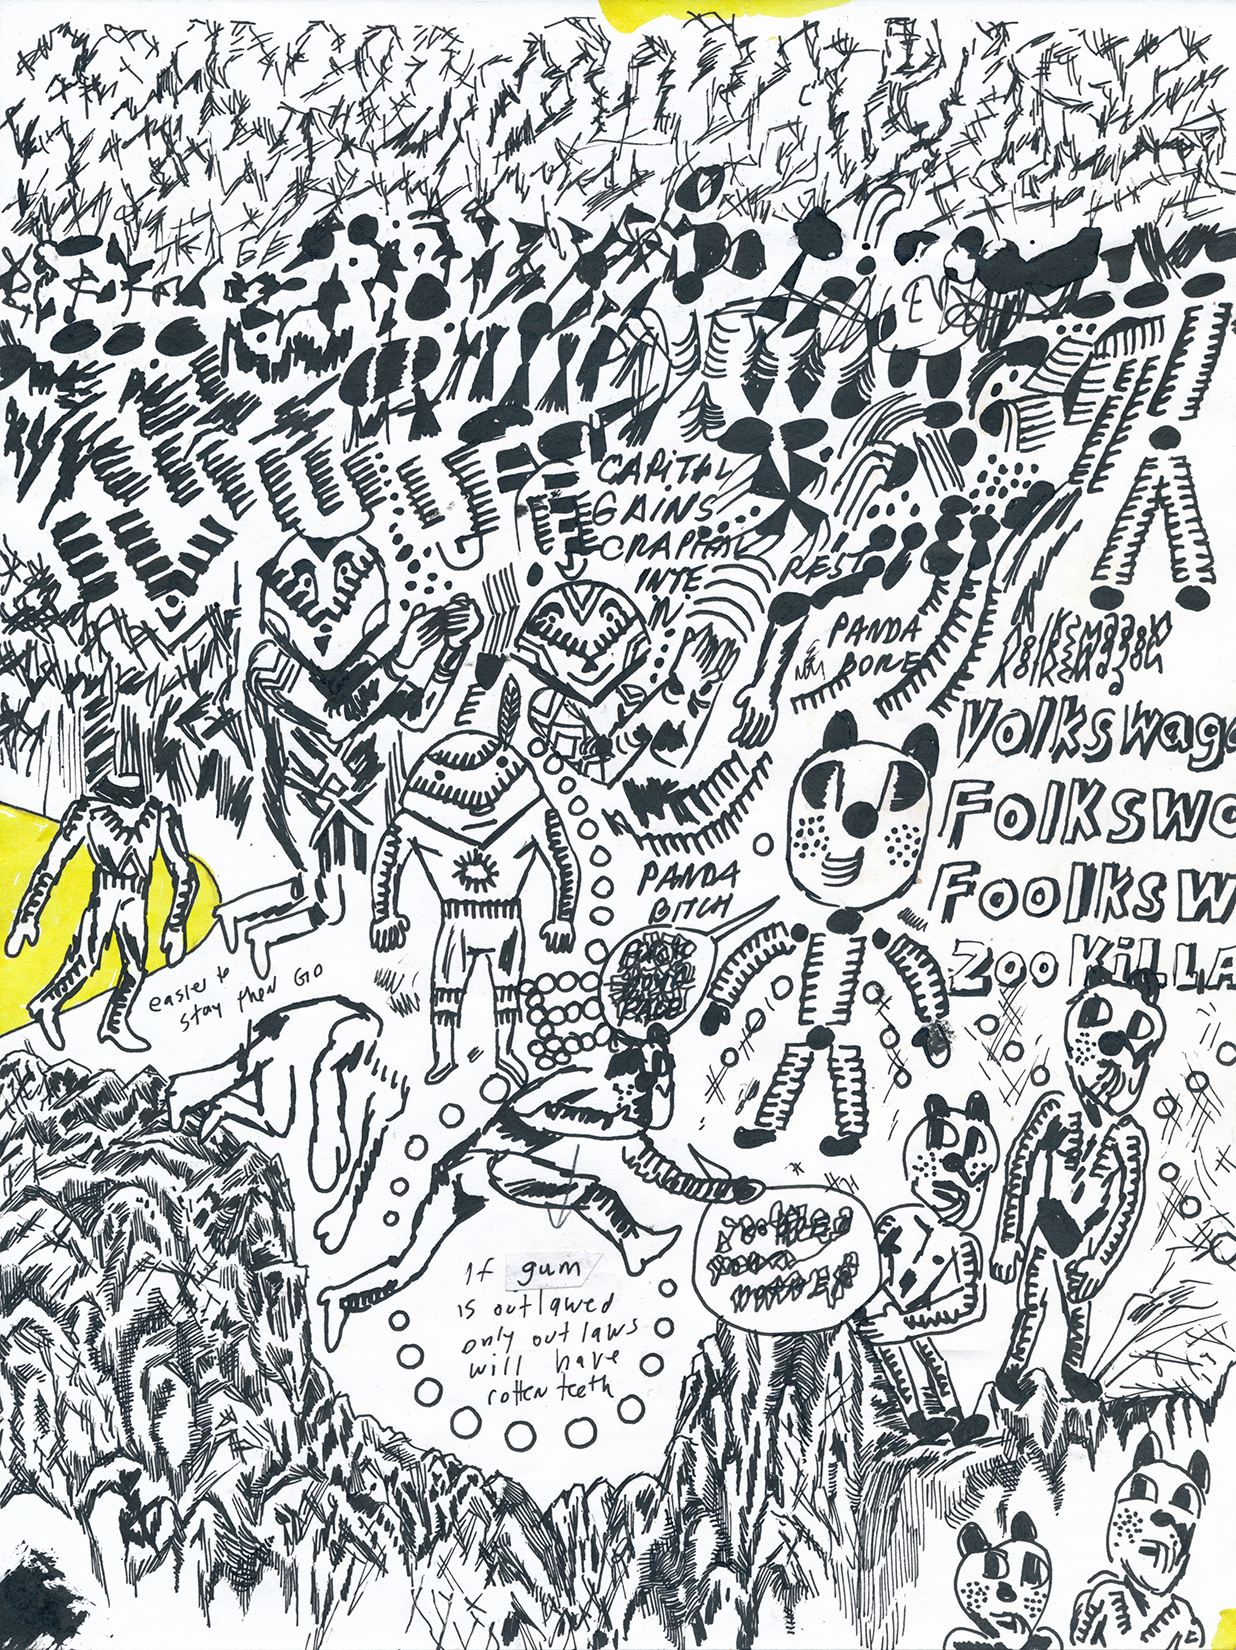 E
CAPITAL
GAINS
CRAPITAL
REST
INTE
IN
PANDA
BONE
Volkswag
Folkswo
FoolksW
Zoo KiLLA
PANDA
BITCH
easier to
stay then GO
If gum
is outlawed
only out laws
will have
rotten teeth